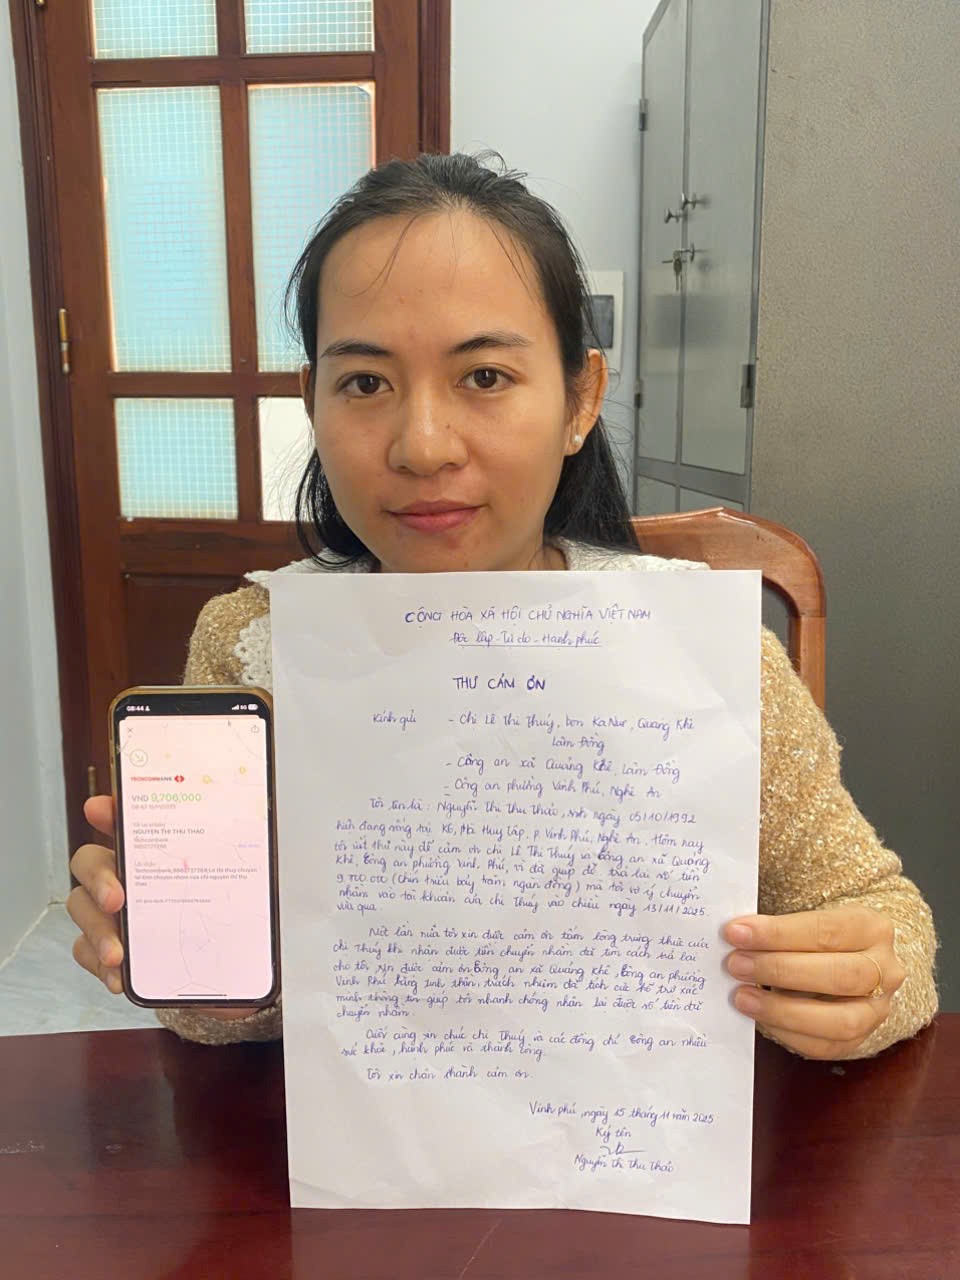 CỘNG HÒA XÃ HỘI CHỦ NGHĨA VIỆT NAM
Độc lập - Tự do - Hạnh phúc
THƯ CẢM ƠN
Kính gửi - Chị Lê Thị Thuý, bon KaNur, Quảng Khê
Lâm Đồng
- Công an xã Quảng Khê, Lâm Đồng
- Công an phường Vinh Phú, Nghệ An
Tôi tên là: Nguyễn Thị Thu Thảo, sinh ngày 05/10/1992
hiện đang sống tại K6, Hà Huy Tập, p. Vinh Phú, Nghệ An. Hôm nay
tôi viết thư này để cảm ơn chị Lê Thị Thuý và công an xã Quảng
Khê, công an phường Vinh Phú, vì đã giúp đỡ trả lại số tiền
(chín triệu bảy trăm ngàn đồng) mà tôi vô ý chuyển
nhầm vào tài khoản của chị Thuý vào chiều ngày 13/11/2025
vừa qua.
Một lần nữa tôi xin được cảm ơn tấm lòng trung thực của
chị Thuý khi nhận được tiền chuyển nhầm đã tìm cách trả lại
cho tôi, xin được cảm ơn công an xã Quảng Khê, công an phường
Vinh Phú bằng tinh thần, trách nhiệm đã tích cực hỗ trợ xác
minh thông tin giúp tôi nhanh chóng nhận lại được số tiền đã
chuyển nhầm.
Cuối cùng xin chúc chị Thuý và các đồng chí công an nhiều
sức khỏe, hạnh phúc và thành công.
Tôi xin chân thành cảm ơn.
Vinh phú, ngày 15 tháng 11 năm 2025
Ký tên
Nguyễn Thị Thu Thảo
08:44
5G
TECHCOMBANK
VND 9,706,000
NGUYEN THI THU THAO
Techcombank